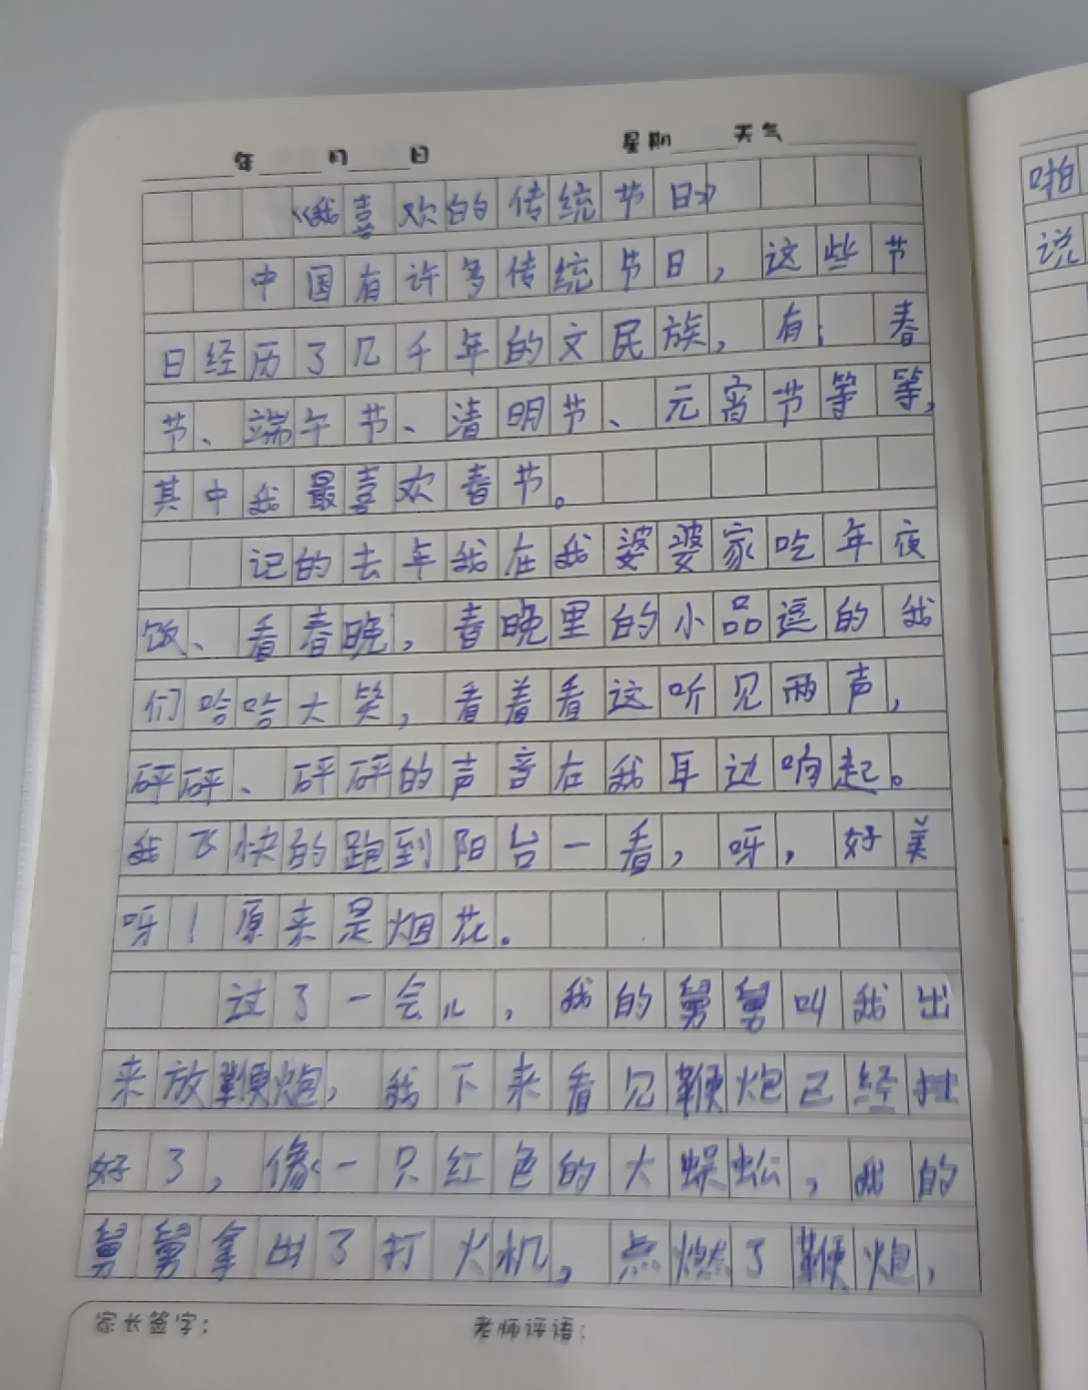 年 月 日 星期 天气
《我喜欢的传统节日》
中国有许多传统节日，这些节
日经历了几千年的文民族，有：春
节、端午节、清明节、元宵节等等，
其中我最喜欢春节。
记的去年我在我婆婆家吃年夜
饭、看春晚，春晚里的小品逗的我
们哈哈大笑，看着看这听见两声，
砰砰、砰砰的声音在我耳边响起。
我飞快的跑到阳台一看，呀，好美
呀！原来是烟花。
过了一会儿，我的舅舅叫我出
来放鞭炮，我下来看见鞭炮已经挂
好了，像一只红色的大蜈蚣，我的
舅舅拿出了打火机，点燃了鞭炮，
家长签字： 老师评语：
啪
说